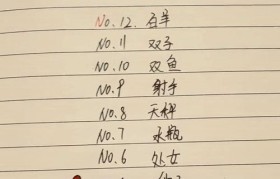 No.12. 白羊
No.11 双子
No.10 双鱼
No.9 射手
No.8 天秤
No.7 水瓶
No.6 处女